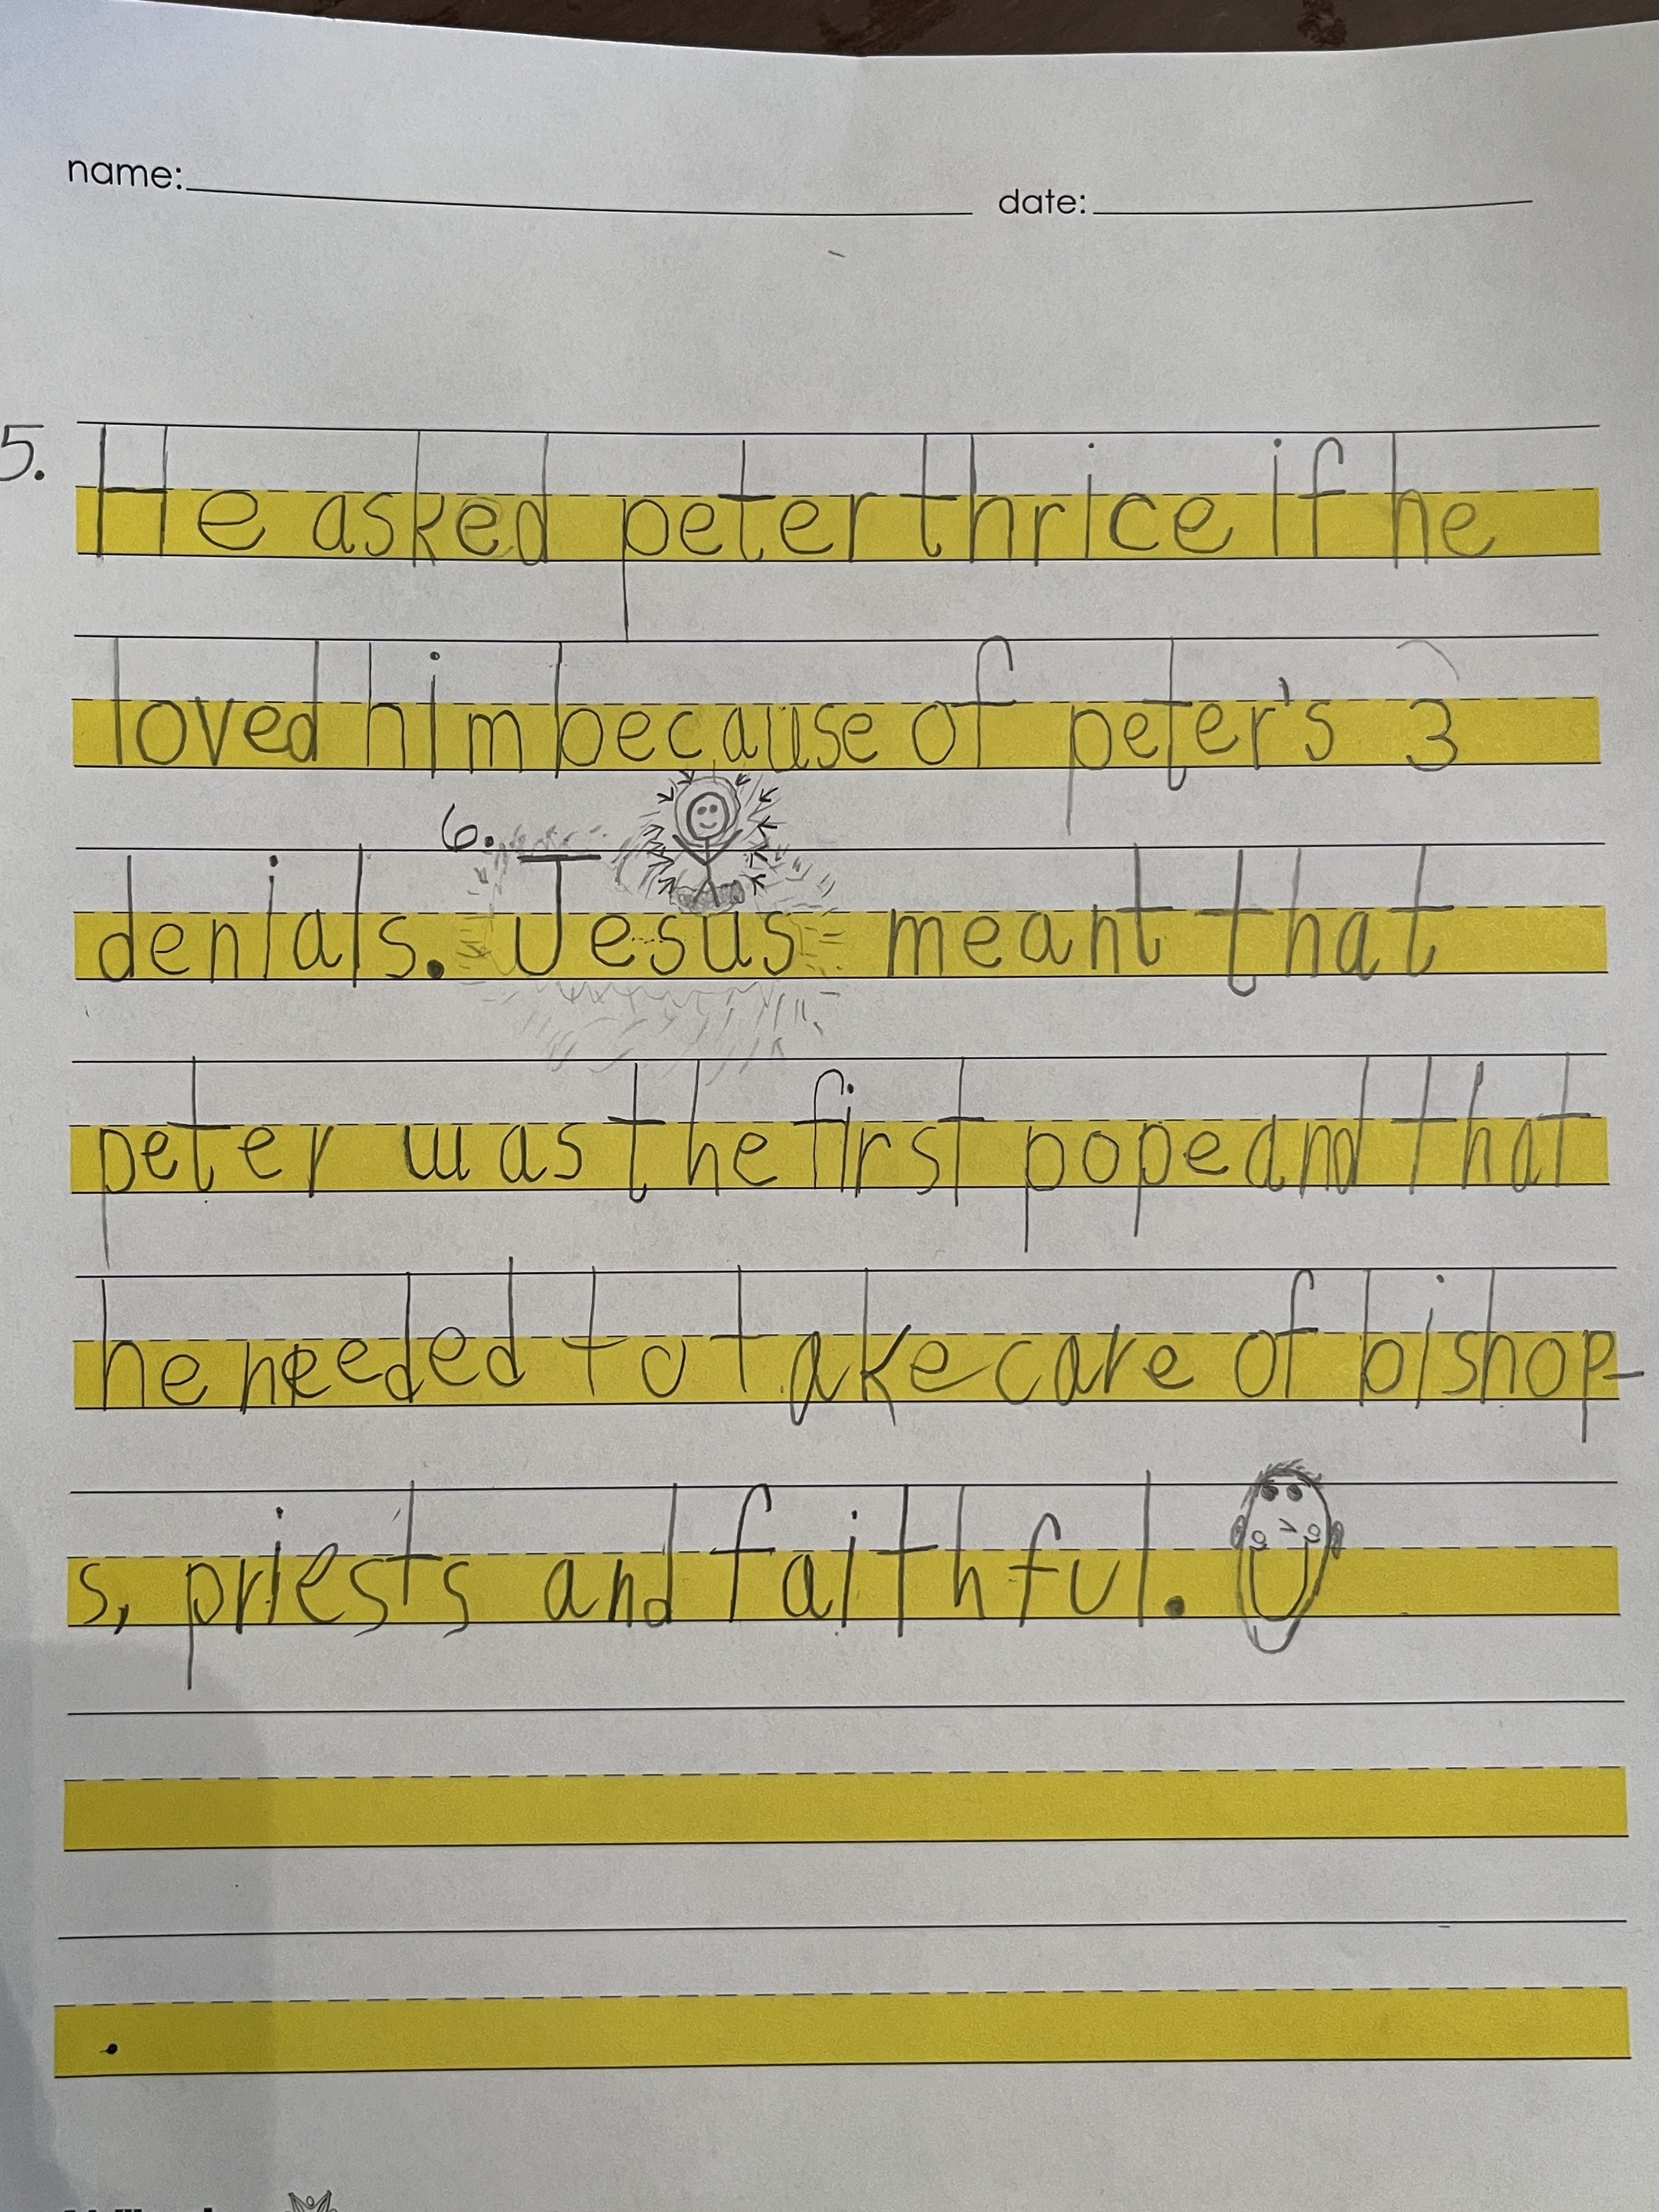 name: date:
5. He asked peter thrice if he
loved him because of peter's 3
6.
denials. Jesus meant that
peter was the first pope and that
he needed to take care of bishop-
s, priests and faithful.